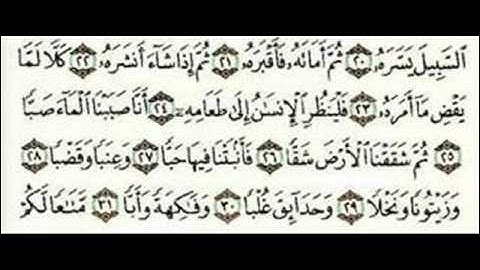 السَّبِيلَ يَسَّرَهُۥ ۝٢٠ ثُمَّ أَمَاتَهُۥ فَأَقْبَرَهُۥ ۝٢١ ثُمَّ إِذَا شَآءَ أَنشَرَهُۥ ۝٢٢ كَلَّا لَمَّا
يَقْضِ مَآ أَمَرَهُۥ ۝٢٣ فَلْيَنظُرِ الْإِنسَٰنُ إِلَىٰ طَعَامِهِۦٓ ۝٢٤ أَنَّا صَبَبْنَا الْمَآءَ صَبًّا
۝٢٥ ثُمَّ شَقَقْنَا الْأَرْضَ شَقًّا ۝٢٦ فَأَنۢبَتْنَا فِيهَا حَبًّا ۝٢٧ وَعِنَبًا وَقَضْبًا ۝٢٨
وَزَيْتُونًا وَنَخْلًا ۝٢٩ وَحَدَآئِقَ غُلْبًا ۝٣٠ وَفَٰكِهَةً وَأَبًّا ۝٣١ مَّتَٰعًا لَّكُمْ